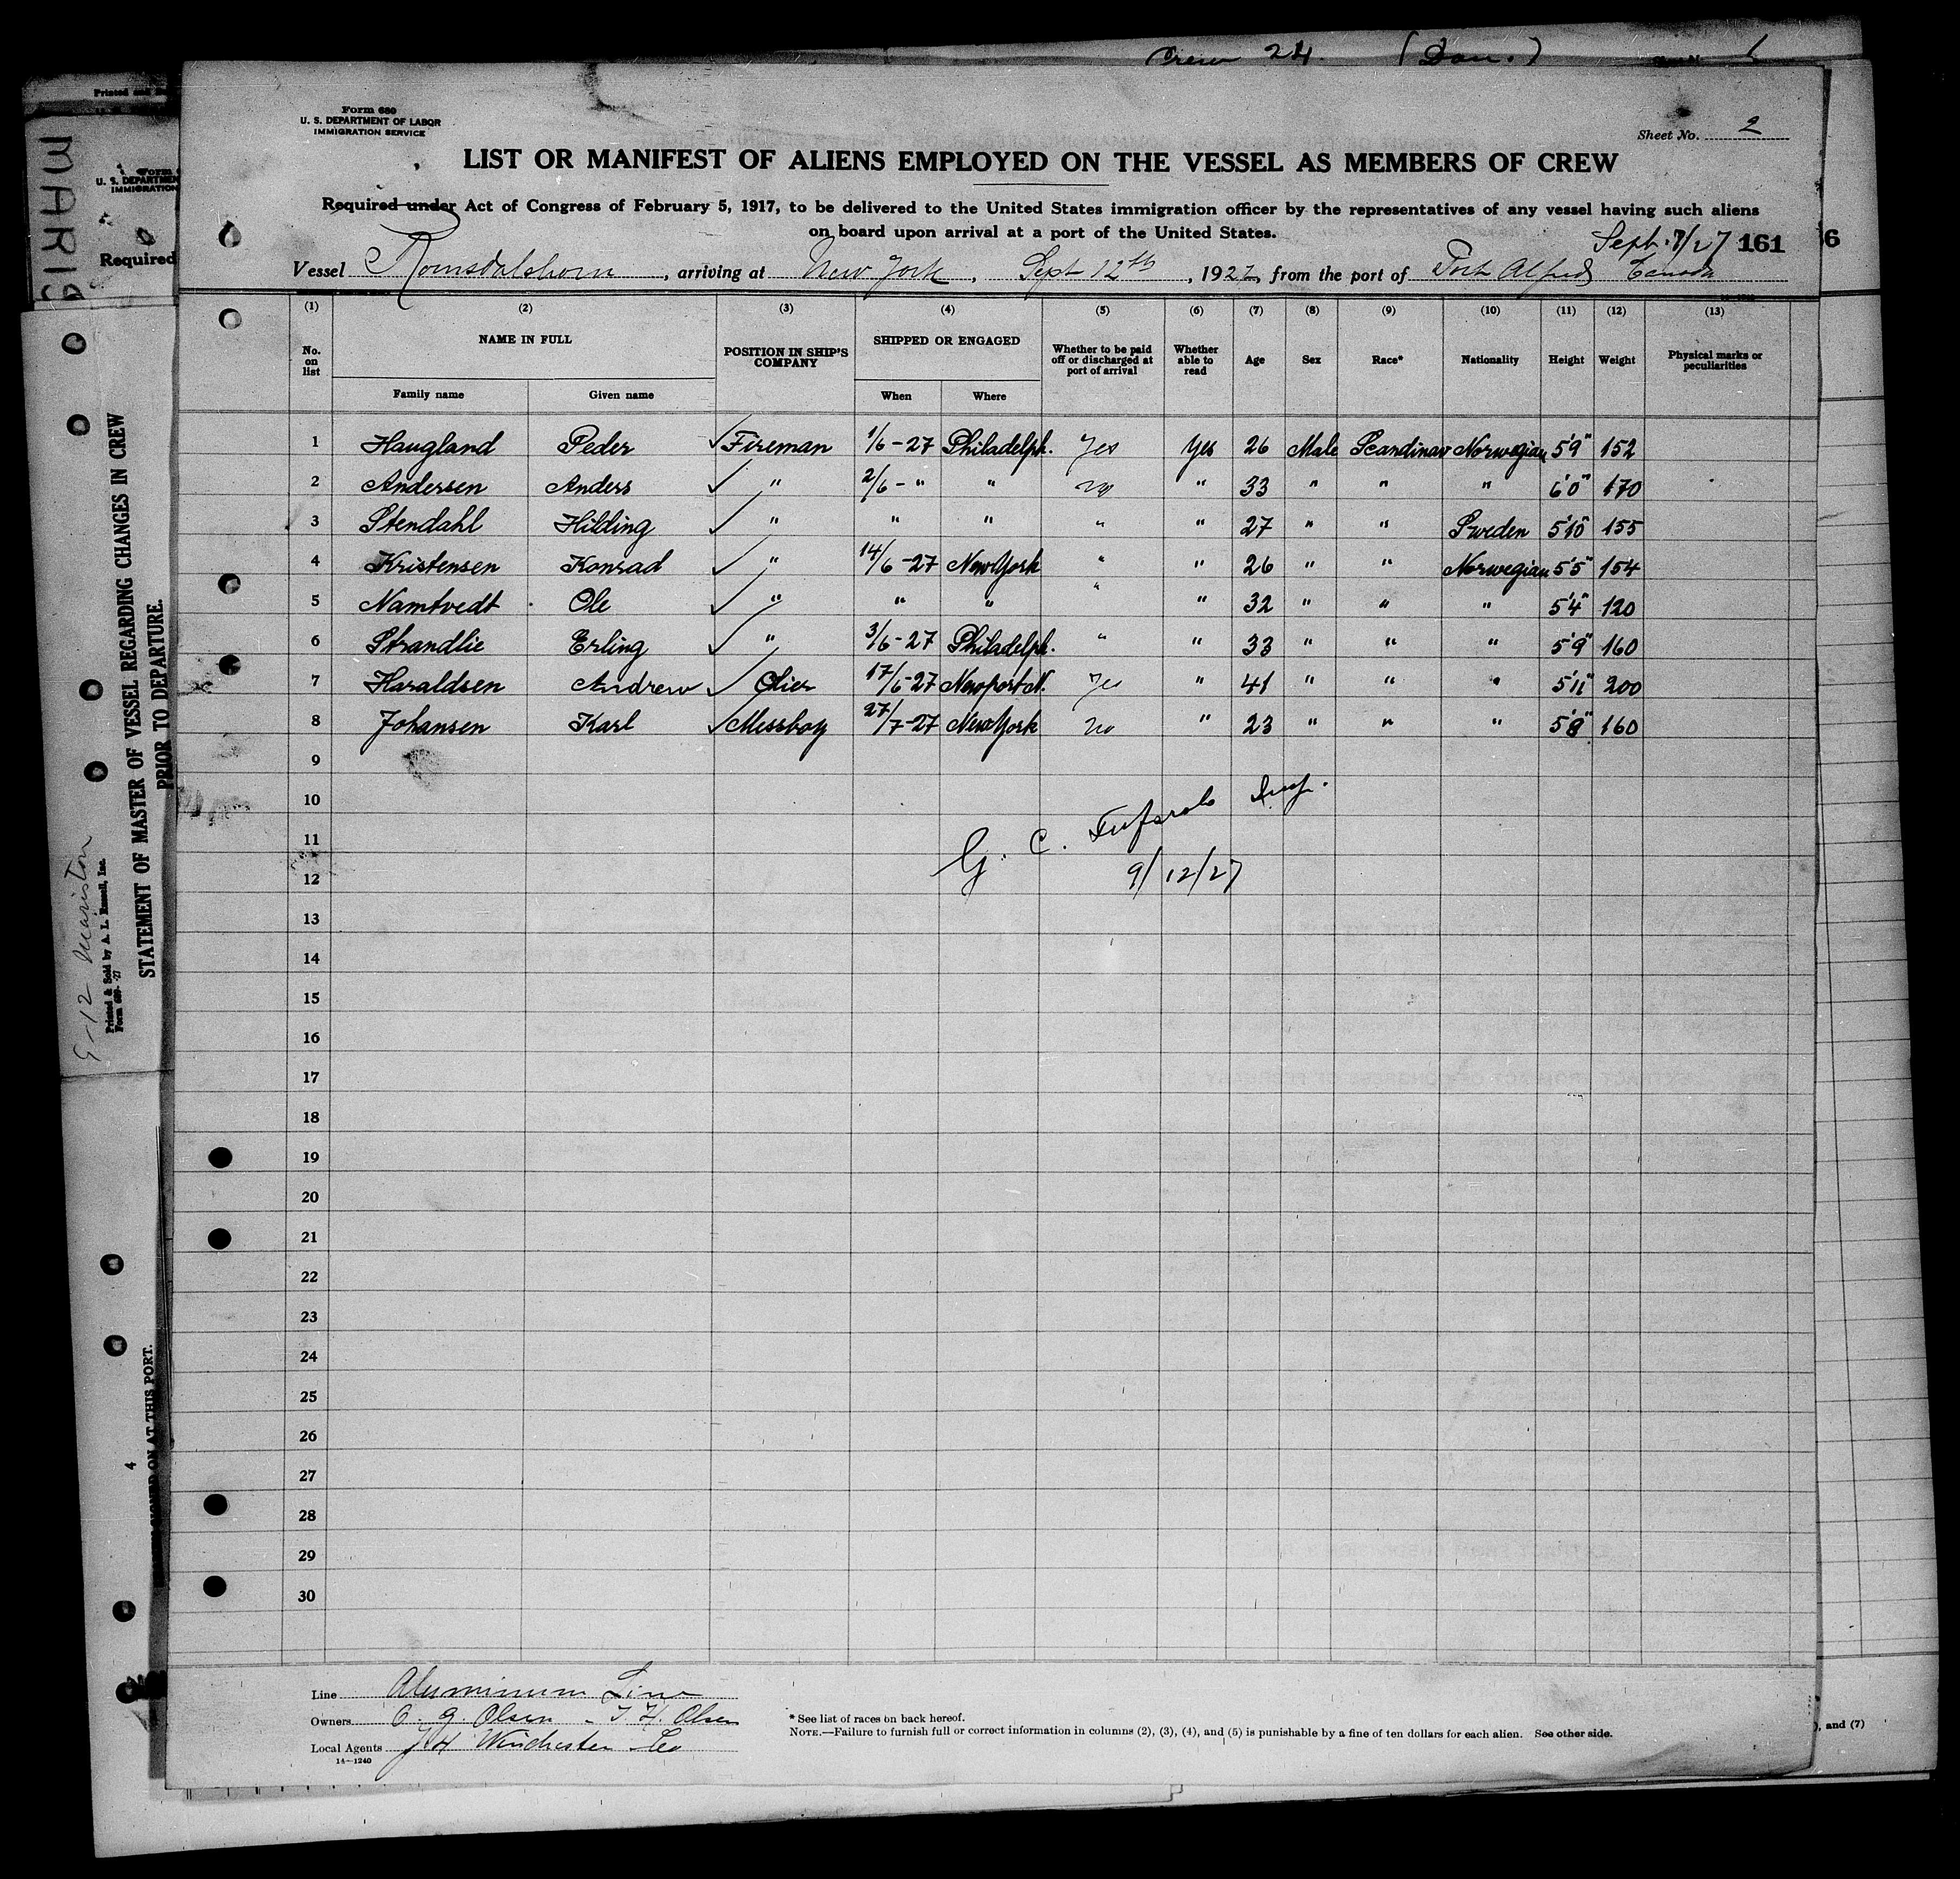 Crew 24. (Dan.)
Form 680
U. S. DEPARTMENT OF LABOR
IMMIGRATION SERVICE
Sheet No. 2
LIST OR MANIFEST OF ALIENS EMPLOYED ON THE VESSEL AS MEMBERS OF CREW
Required under Act of Congress of February 5, 1917, to be delivered to the United States immigration officer by the representatives of any vessel having such aliens
on board upon arrival at a port of the United States.
Sept. 7/27 161
Vessel Romsdalshorn, arriving at New York, Sept 12th, 1927, from the port of Port Alfred Canada
(1) (2) (3) (4) (5) (6) (7) (8) (9) (10) (11) (12) (13)
No. on list NAME IN FULL POSITION IN SHIP'S COMPANY SHIPPED OR ENGAGED Whether to be paid off or discharged at port of arrival Whether able to read Age Sex Race* Nationality Height Weight Physical marks or peculiarities
Family name Given name When Where
1 Haugland Peder ✓ Fireman 1/6-27 Philadelph. Yes Yes 26 Male Scandinav Norwegian 5'9" 152
2 Andersen Anders ✓ " 2/6-" " no " 33 " " " 6'0" 170
3 Stendahl Hilding ✓ " " " " " 27 " " Sweden 5'10" 155
4 Kristensen Konrad ✓ " 14/6-27 New York " " 26 " " Norwegian 5'5" 154
5 Namtvedt Ole ✓ " " " " " 32 " " " 5'4" 120
6 Strandlie Erling ✓ " 3/6-27 Philadelph. " " 33 " " " 5'9" 160
7 Haraldsen Andrew ✓ Olier 17/6-27 Newport N. Yes " 41 " " " 5'11" 200
8 Johansen Karl ✓ Messboy 27/7-27 New York no " 23 " " " 5'8" 160
9
10
11
12
G. C. Insp.
9/12/27
13
14
15
16
17
18
19
20
21
22
23
24
25
26
27
28
29
30
Line Aluminum Line
Owners O. g. Olsen - T. H. Olsen
Local Agents J H Winchester Co
14-1240
* See list of races on back hereof.
NOTE.—Failure to furnish full or correct information in columns (2), (3), (4), and (5) is punishable by a fine of ten dollars for each alien. See other side.
6
), and (7)
Form
U. S. DEPARTMEN
IMMIGRATION
Required
MARIS
STATEMENT OF MASTER OF VESSEL REGARDING CHANGES IN CREW
PRIOR TO DEPARTURE.
Printed & Sold by A. L. Russell, Inc.
Form 689-27
9-12 Mariston
ON AT THIS PORT.
4